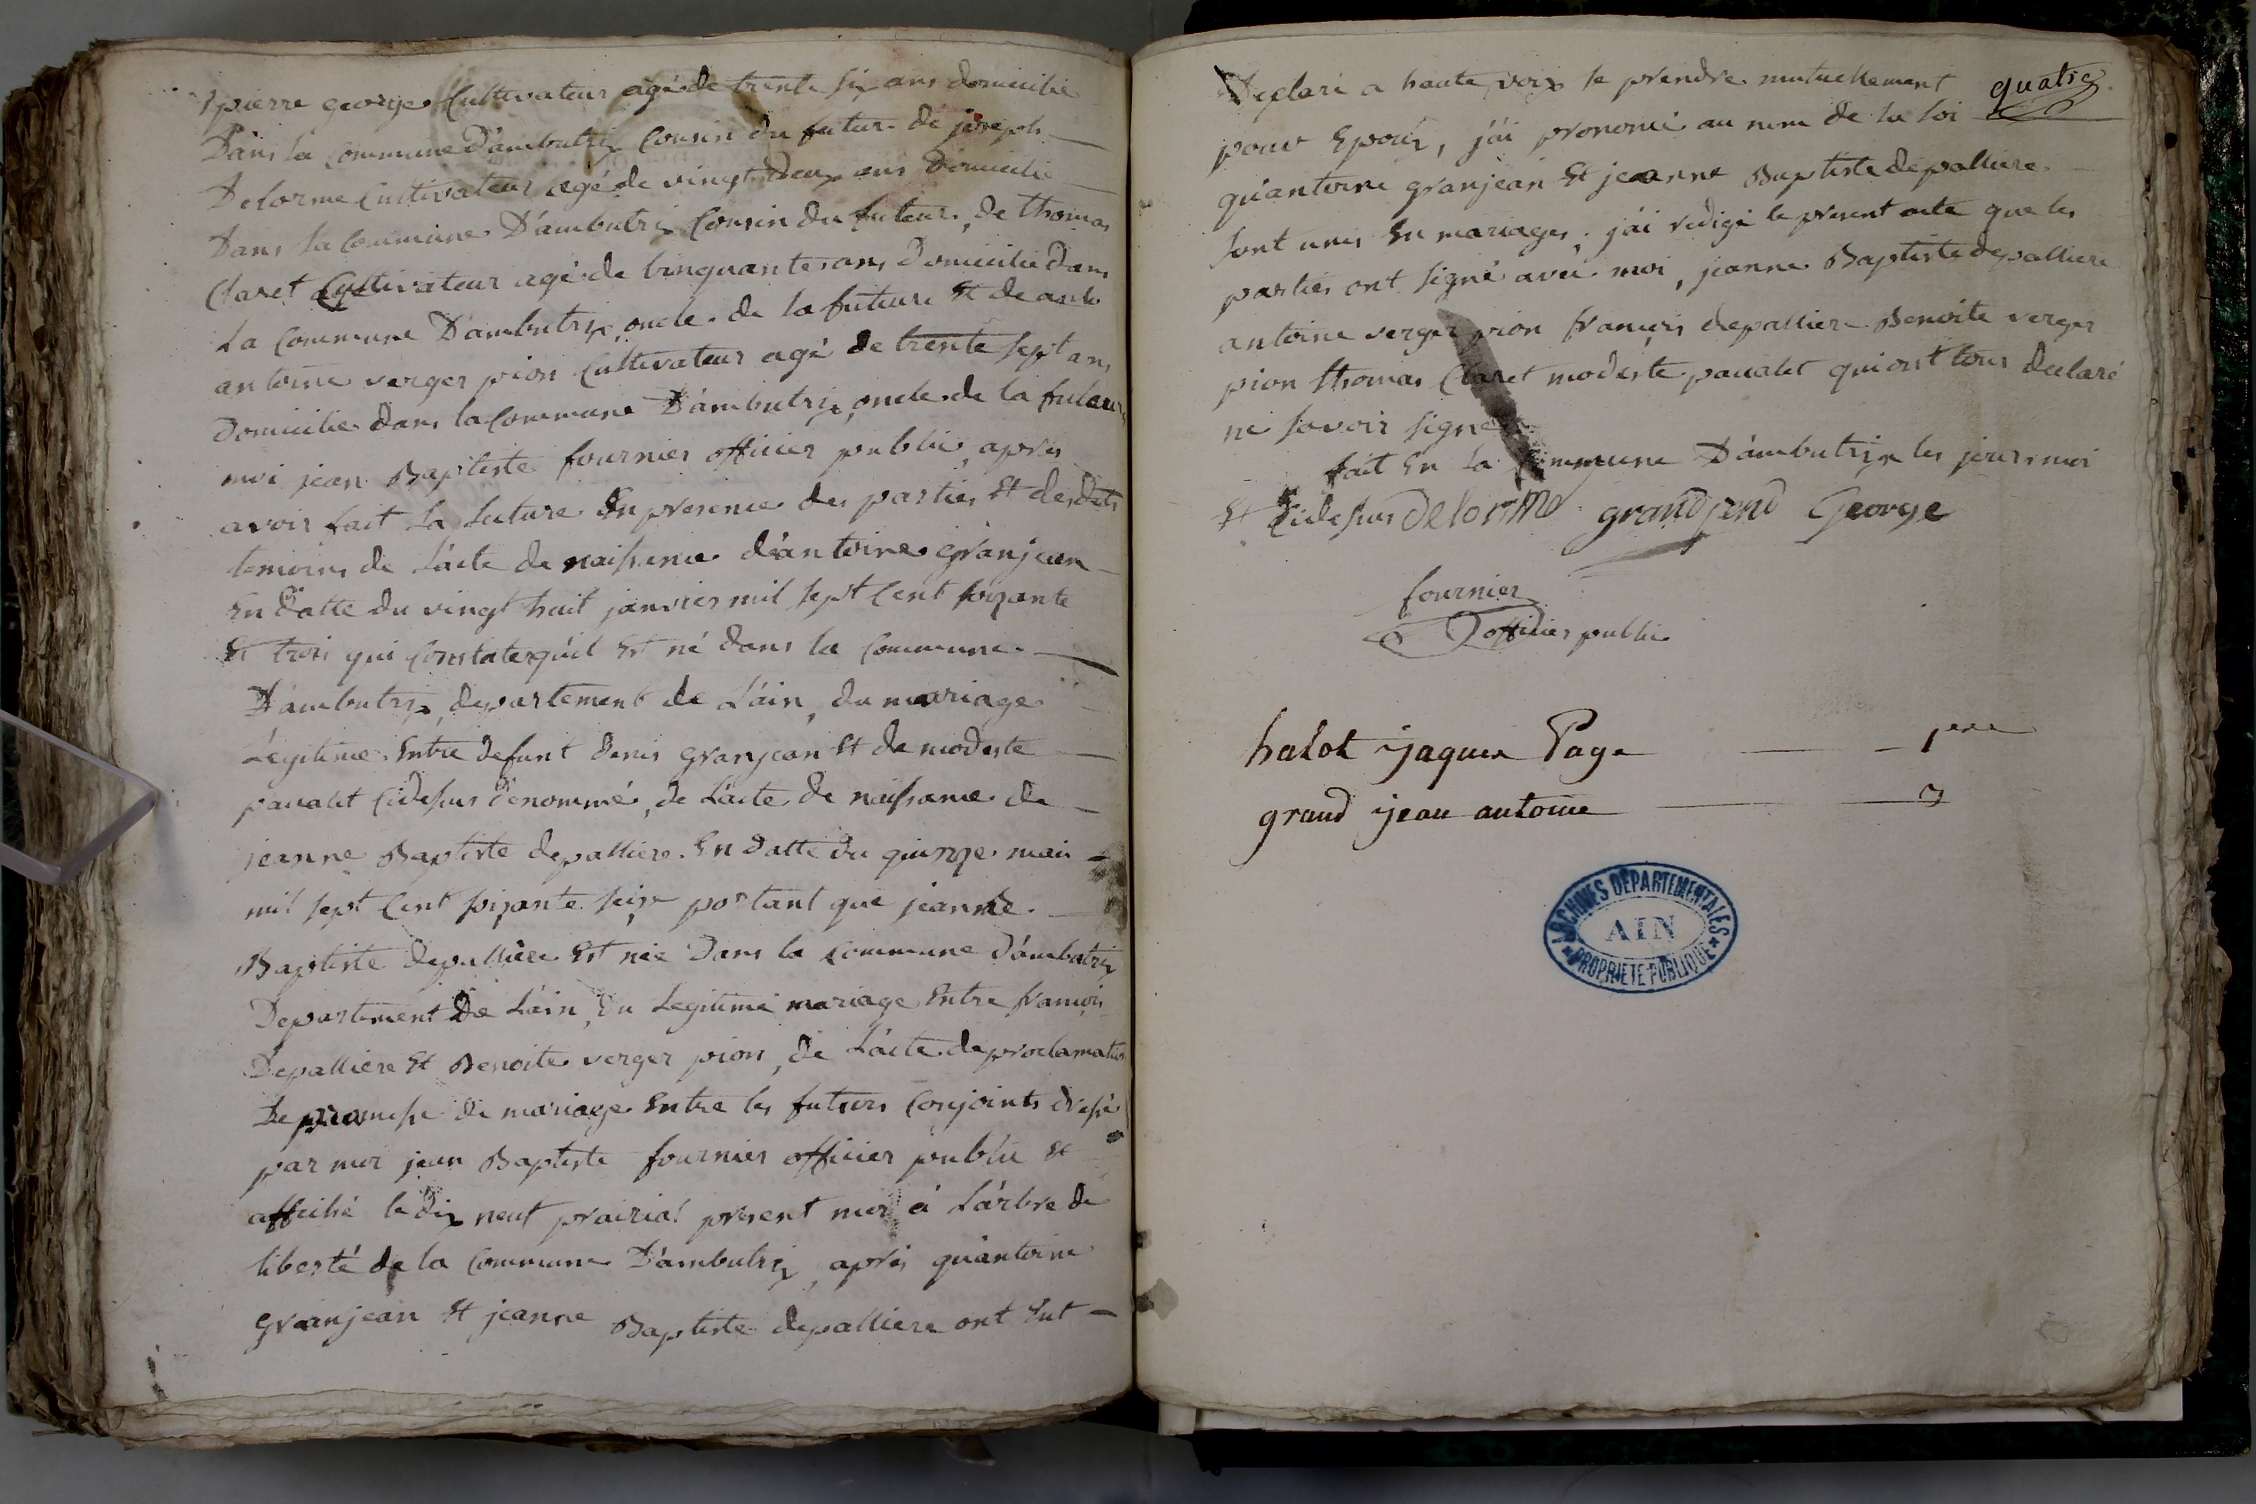 pierre george Cultivateur agé de trente six ans domicilie
Dans la commune D'ambutrix Cousin du futur de joseph
Delorme Cultivateur agé de vingt deux ans Domicilie
Dans la commune D'ambutrix Cousin du futeur, de thomas
Claret Cultivateur agé de Cinquante ans Domicilie dans
La Commune D'ambutrix, oncle de la future Et de
antoine verger pion Cultivateur agé de trente sept ans
Domicilie dans la Commune D'ambutrix, oncle de la future
moi jean Baptiste fournier officier public, apres
avoir fait La Lecture En presence des parties Et desdits
temoins de L'acte de naissance d'antoine granjean
En datte du vingt huit janvier mil sept Cent soixante
Et trois qui Constate qu'il Est né dans la Commune
D'ambutrix, departement de L'ain, du mariage
Legitime Entre defunt denis granjean Et de modeste
pavalet Cidessus denommé, de L'acte de naissance de
jeanne Baptiste depalliere En datte du quinze mai
mil sept Cent soixante seize portant que jeanne
Baptiste depalliere Est née Dans la commune d'ambutrix
Departement de L'ain, du Legitime mariage Entre francois
Depalliere Et Benoite verger pion, de L'acte de proclamation
De promesse de mariage Entre les futurs Conjoints dressé
par moi jean Baptiste fournier officier public Et
affiché le dix neuf prairial present mois à L'arbre de
liberté de la Commune D'ambutrix, aprés qu'antoine
Granjean Et jeanne Baptiste depalliere ont Eut
quatre
Declaré a haute voix se prendre mutuellement
pour Epoux, j'ai prononcé au nom de la loi
qu'antoine granjean Et jeanne Baptiste depalliere
sont unis En mariages, j'ai redigé le present acte que les
parties ont signé avec moi, jeanne Baptiste depalliere
antoine verger pion francois depalliere Benoite verger
pion thomas Claret modeste pavalet qui ont tous declaré
ne savoir signer
fait En La Commune D'ambutrix les jour, moi
Et Cidessus Delorme grandjend George
fournier
officier public
halot jaques Page 1ere
grand jean antoine 3
ARCHIVES DÉPARTEMENTALES
AIN
PROPRIÉTÉ PUBLIQUE